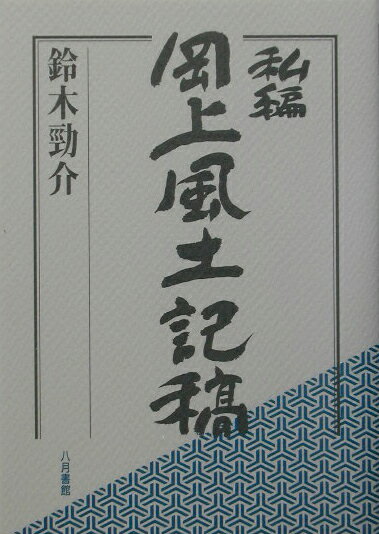 私編
岡上風土記稿
鈴木勁介
八月書館